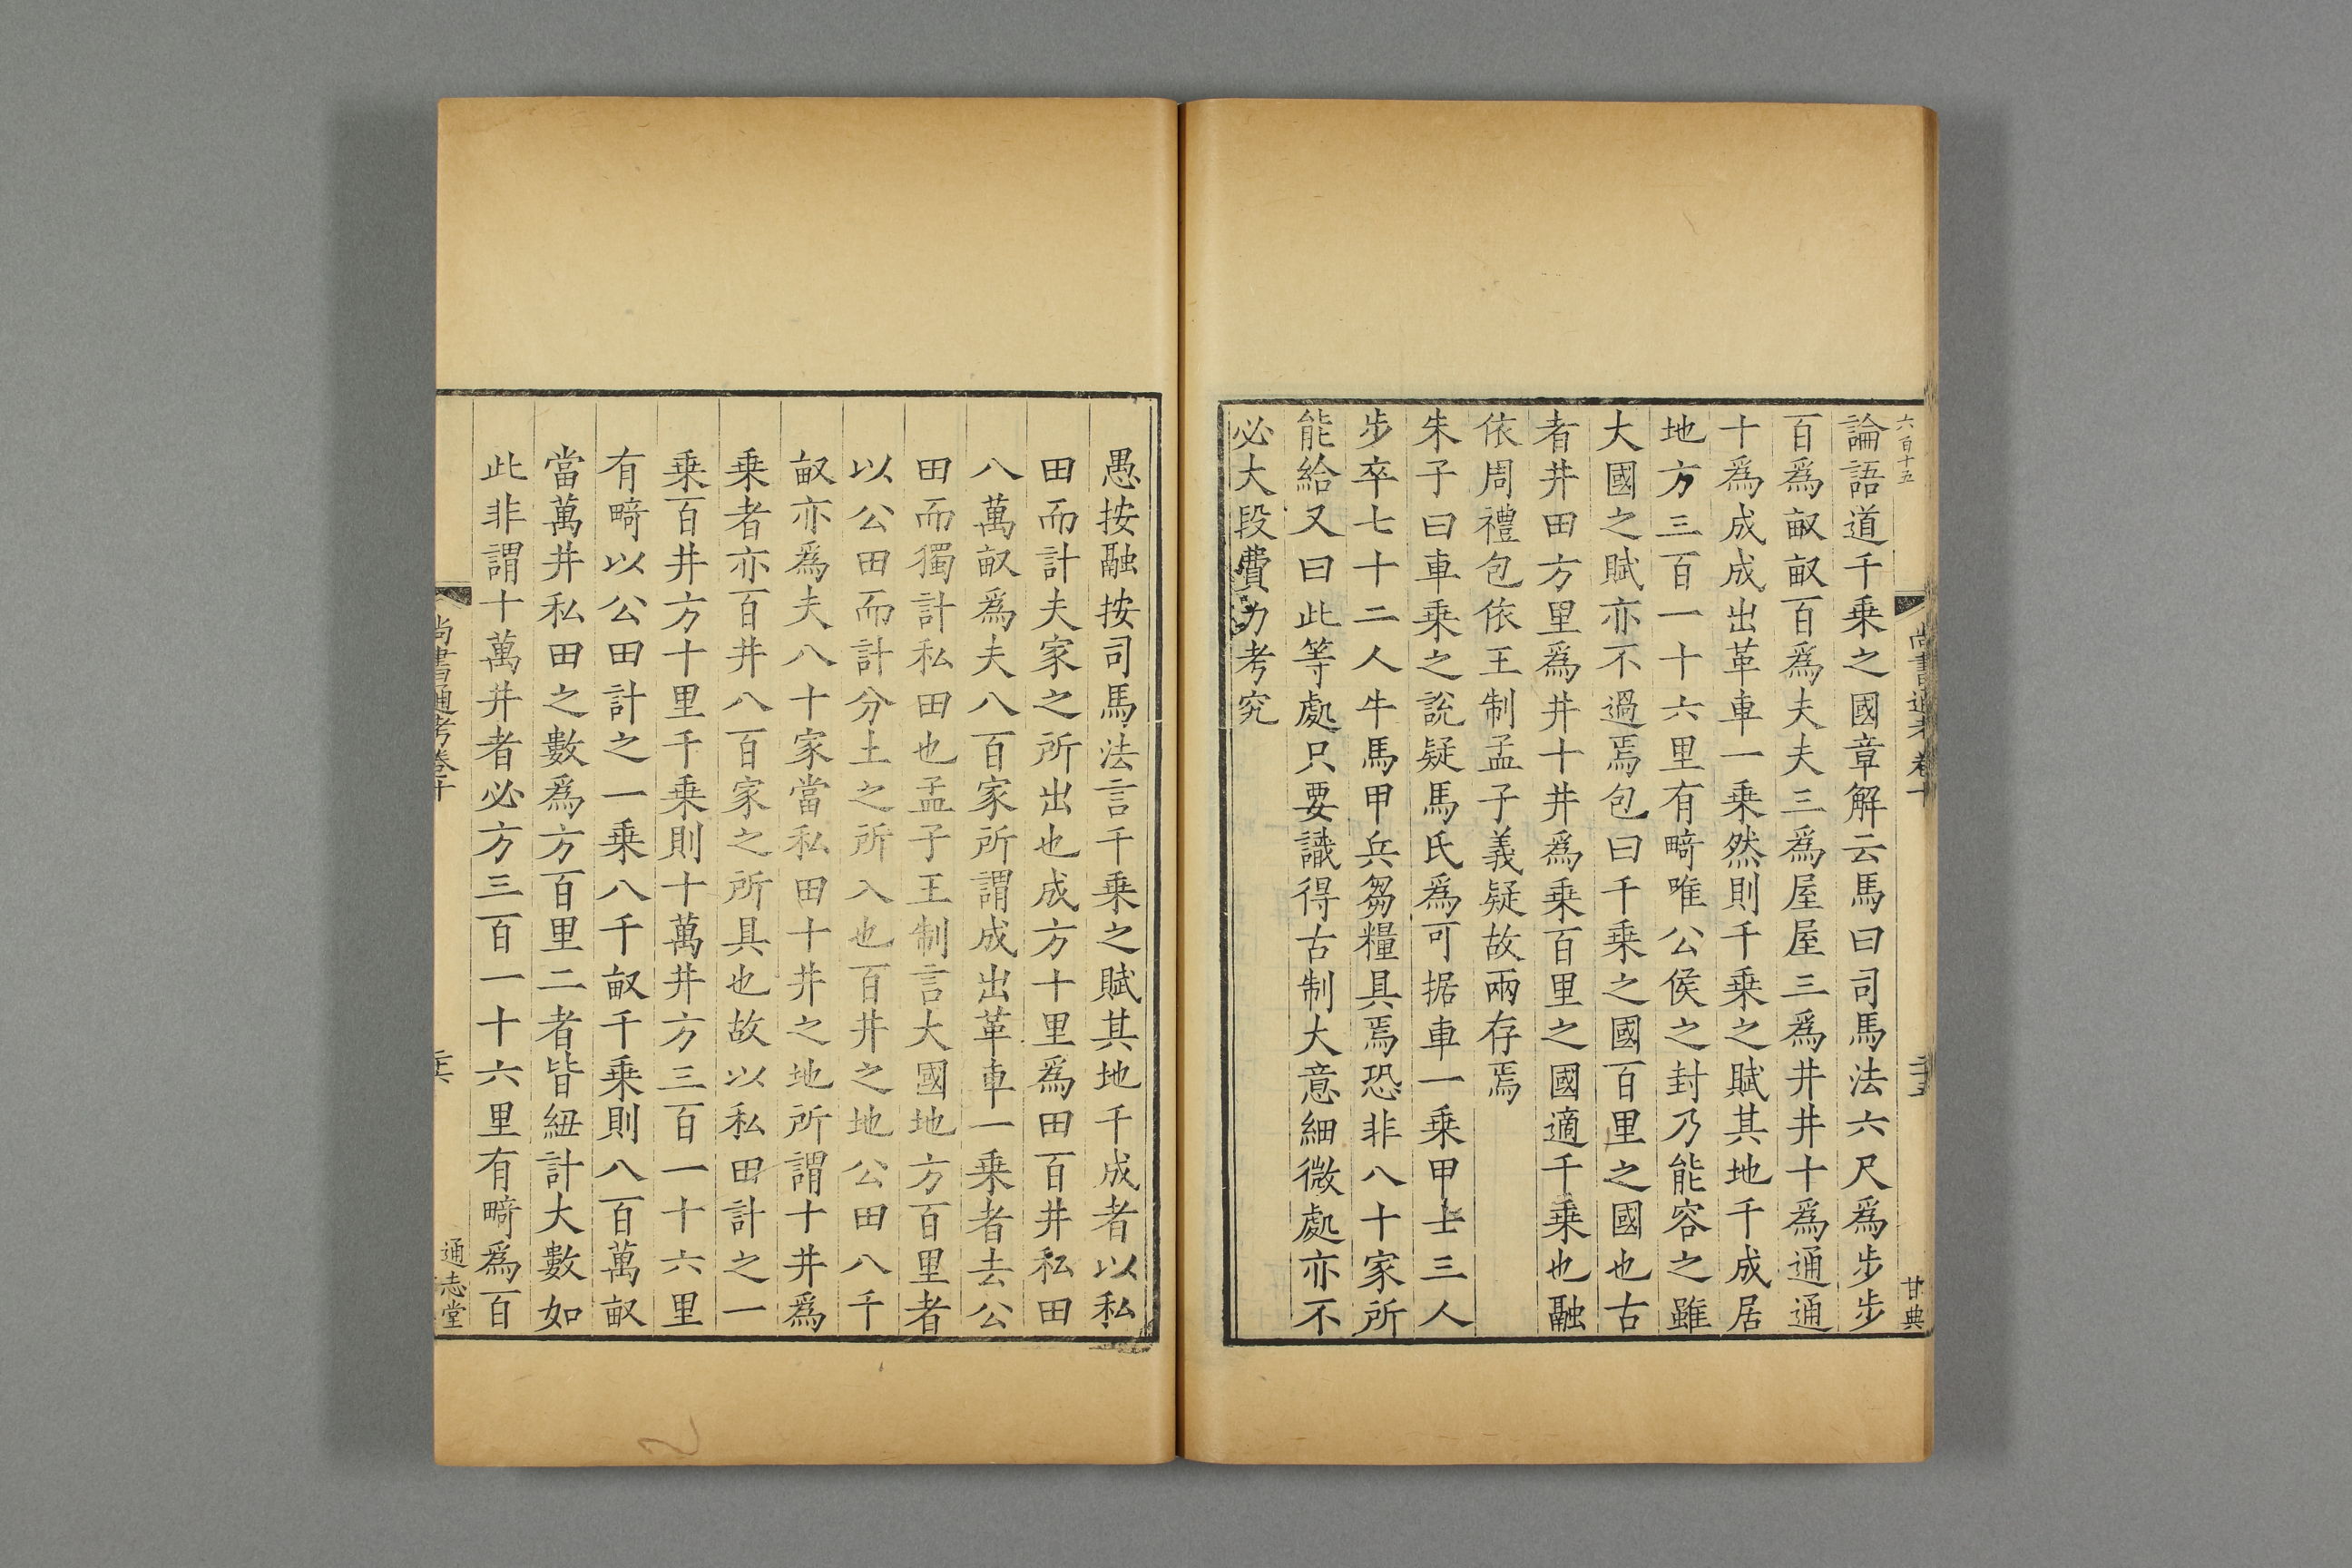 六百十五
尚書通考卷十
二十五
甘典
論語道千乗之國章解云馬曰司馬法六尺爲步步
百爲畞畞百爲夫夫三爲屋屋三爲井井十爲通通
十爲成成出革車一乗然則千乗之賦其地千成居
地方三百一十六里有畸唯公侯之封乃能容之雖
大國之賦亦不過焉包曰千乗之國百里之國也古
者井田方里爲井十井爲乗百里之國適千乗也融
依周禮包依王制孟子義疑故兩存焉
朱子曰車乗之說疑馬氏爲可据車一乗甲士三人
步卒七十二人牛馬甲兵芻糧具焉恐非八十家所
能給又曰此等處只要識得古制大意細微處亦不
必大段費力考究
愚按融按司馬法言千乗之賦其地千成者以私
田而計夫家之所出也成方十里爲田百井私田
八萬畞爲夫八百家所謂成出革車一乗者去公
田而獨計私田也孟子王制言大國地方百里者
以公田而計分土之所入也百井之地公田八千
畞亦爲夫八十家當私田十井之地所謂十井爲
乗者亦百井八百家之所具也故以私田計之一
乗百井方十里千乗則十萬井方三百一十六里
有畸以公田計之一乗八千畞千乗則八百萬畞
當萬井私田之數爲方百里二者皆紐計大數如
此非謂十萬井者必方三百一十六里有畸爲百
尚書通考卷十
二十六
通志堂